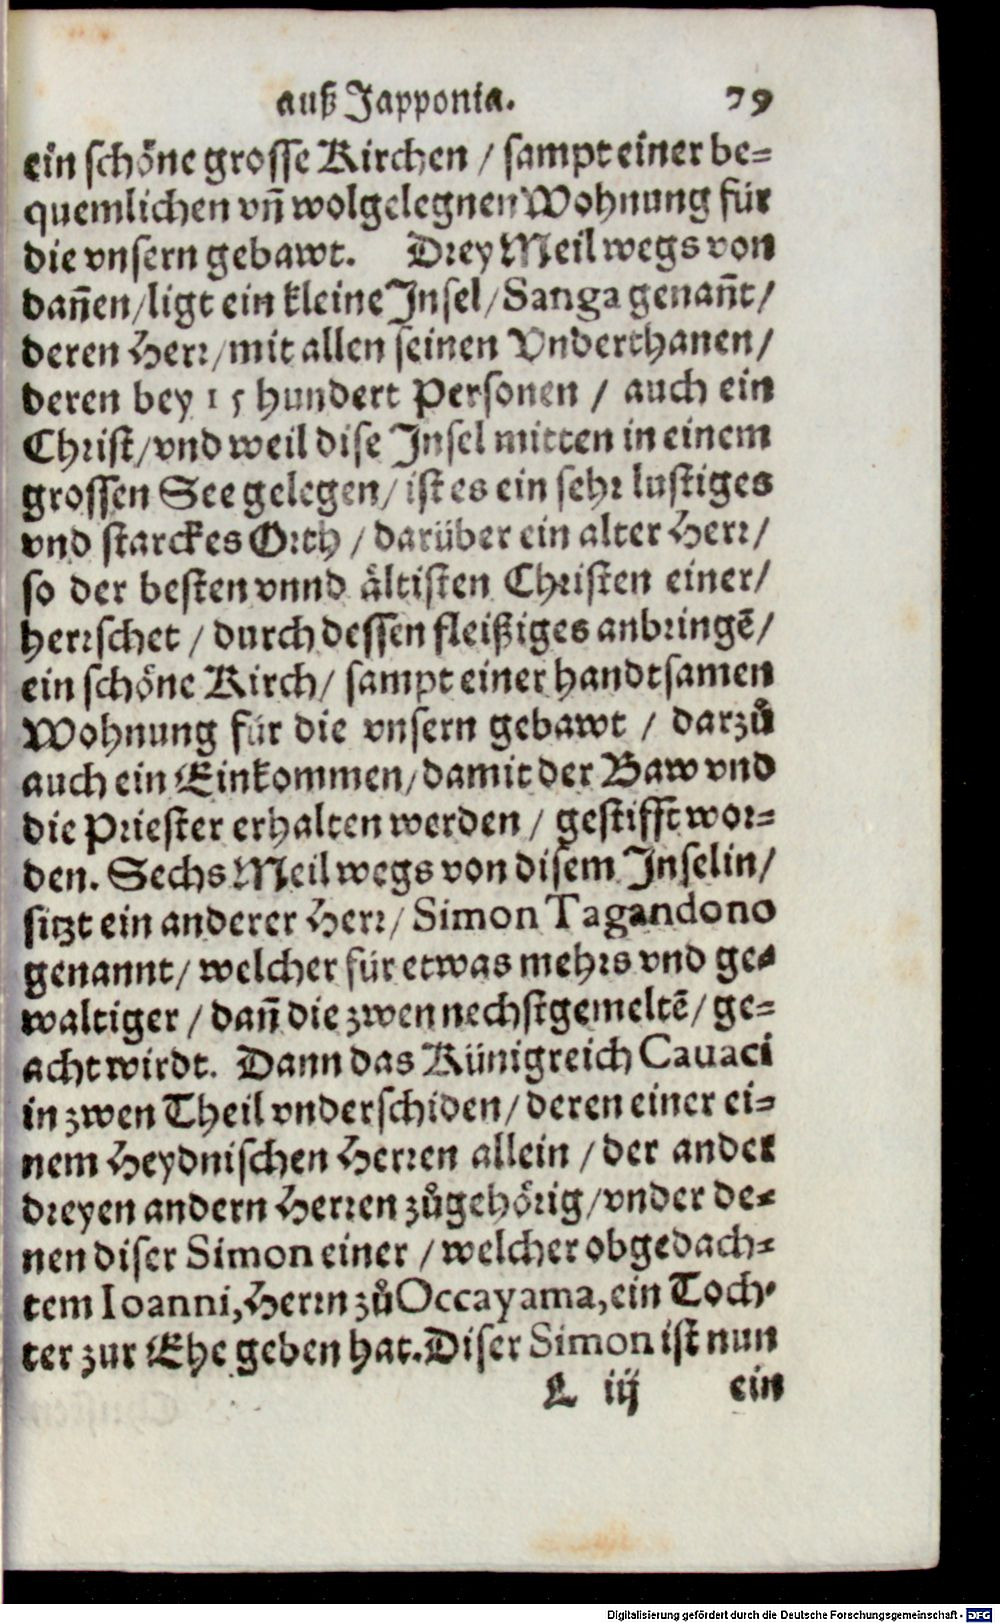 auß Japponia. 79
ein schöne grosse Kirchen / sampt einer be=
quemlichen vn̄ wolgelegnen Wohnung für
die vnsern gebawt. Drey Meil wegs von
dan̄en/ligt ein kleine Insel/Sanga genan̄t/
deren Herr/mit allen seinen Vnderthanen/
deren bey 15 hundert Personen / auch ein
Christ/vnd weil dise Insel mitten in einem
grossen See gelegen/ist es ein sehr lustiges
vnd starckes Orth / darüber ein alter Herr/
so der besten vnnd ältisten Christen einer/
herrschet / durch dessen fleißiges anbringē/
ein schöne Kirch/ sampt einer handtsamen
Wohnung für die vnsern gebawt / darzů
auch ein Einkommen/damit der Baw vnd
die Priester erhalten werden / gestifft wor=
den. Sechs Meil wegs von disem Inselin/
sitzt ein anderer Herr/Simon Tagandono
genannt/welcher für etwas mehrs vnd ge=
waltiger / dan̄ die zwen nechstgemeltē/ge=
acht wirdt. Dann das Künigreich Cauaci
in zwen Theil vnderschiden/deren einer ei=
nem Heydnischen Herren allein / der ander
dreyen andern Herren zůgehörig/vnder de=
nen diser Simon einer / welcher obgedach=
tem Ioanni,Herrn zů Occayama,ein Toch=
ter zur Ehe geben hat.Diser Simon ist nun
L iij ein
Digitalisierung gefördert durch die Deutsche Forschungsgemeinschaft - DFG